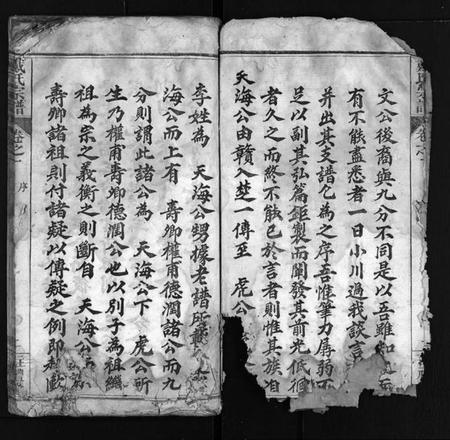 文公後裔與九分不同是以吾雖知
有不能盡悉者一日小川過我談言
并出其支譜乞為之序吾惟筆力孱弱不
足以副其弘篇鉅製而闡發其前光低徊
者久之而終不能已於言者則惟其族自
天海公由贛入楚一傳至 虎公
李姓為 天海公甥據老譜所載
海公而上有 壽卿權甫德潤諸公而九
分則謂此諸公為 天海公下 虎公所
生乃權甫壽卿德潤公也以別子為祖繼
祖為宗之義衡之則斷自 天海公
壽卿諸祖則付諸疑以傳疑之例即
戴氏宗譜 卷之一 序